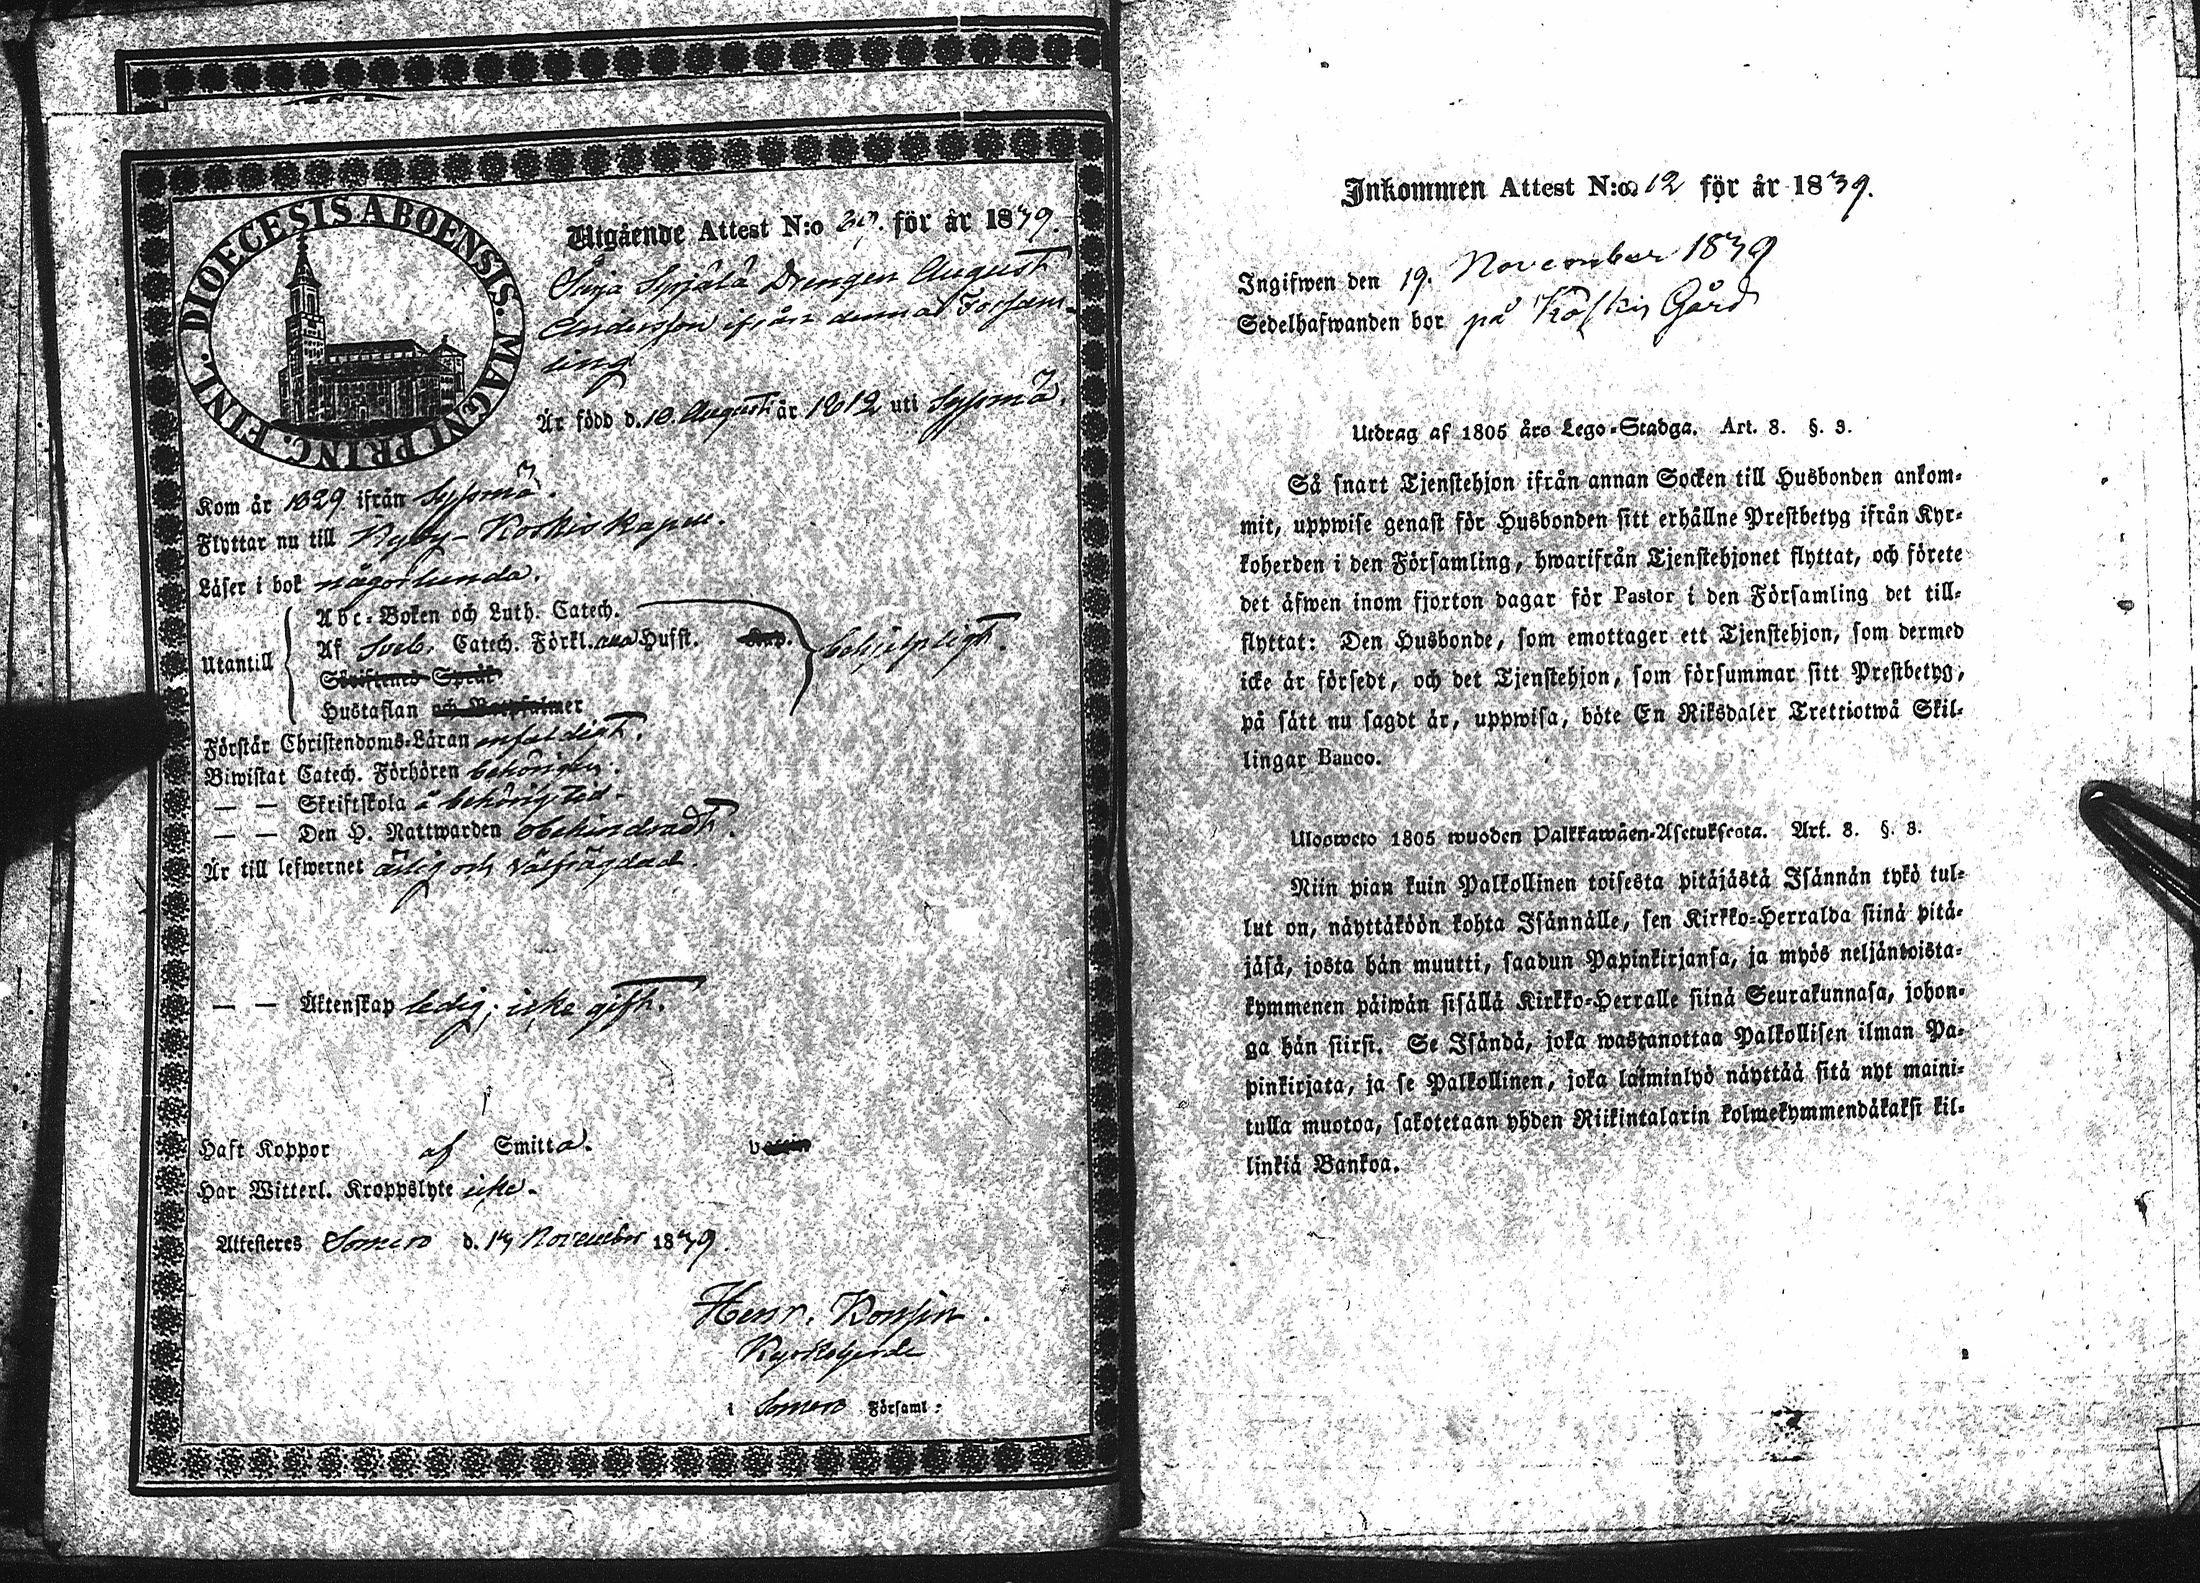 DIOECESIS ABOENSIS. MAGNI PRINC. FINL.
Utgående Attest N:o 39. för år 1839.
Syrjälä Drengen August
Andersson ifrån denna Forsam-
ling
Är född d. 10. Augusti år 1812 uti Sysmä.
Kom år 1829 ifrån Sysmä.
Flyttar nu till Koskis Kapell.
Läser i bok någorlunda.
Utantill
Abc-Boken och Luth. Catech.
Af Sveb. Catech. Förkl. Husst.
Skriftenes Språk
Hustaflan och Botpsalmer
behjelpligt.
Förstår Christendoms-Läran enfaldigt.
Biwistat Catech. Förhören behörigen.
— — Skriftskola å behörig tid.
— — Den H. Nattwarden obehindradt.
Är till lefwernet ärlig och välfrägdad.
— — Äktenskap ledig; icke gift.
Haft Koppor af Smitta.
Har Witterl. Kroppslyte icke.
Attesteres Somero d. 14 November 1839.
Henr.
Kyrkoherde
i Somero Församl:
Inkommen Attest N:o 12 för år 1839.
Ingifwen den 19. November 1839
Sedelhafwanden bor på Koskis Gård
Utdrag af 1805 års Lego-Stadga. Art. 8. §. 3.
Så snart Tjenstehjon ifrån annan Socken till Husbonden ankom-
mit, uppwise genast för Husbonden sitt erhållne Prestbetyg ifrån Kyr-
koherden i den Församling, hwarifrån Tjenstehjonet flyttat, och förete
det äfwen inom fjorton dagar för Pastor i den Församling det till-
flyttat: Den Husbonde, som emottager ett Tjenstehjon, som dermed
icke är försedt, och det Tjenstehjon, som försummar sitt Prestbetyg,
på sätt nu sagdt är, uppwisa, böte En Riksdaler Trettiotwå Skil-
lingar Banco.
Ulosweto 1805 wuoden Palkkawäen-Asetuksesta. Art. 8. §. 3.
Niin pian kuin Palkollinen toisesta pitäjästä Isännän tykö tul-
lut on, näyttäköön kohta Isännälle, sen Kirkko-Herralda siinä pitä-
jäsä, josta hän muutti, saadun Papinkirjansa, ja myös neljäntoista-
kymmenen päiwän sisällä Kirkko-Herralle siinä Seurakunnasa, johon-
ga hän siirsi. Se Isändä, joka wastanottaa Palkollisen ilman Pa-
pinkirjata, ja se Palkollinen, joka laiminlyö näyttää sitä nyt maini-
tulla muotoa, sakotetaan yhden Riikintalarin kolmekymmendäkaksi kil-
linkiä Bankoa.